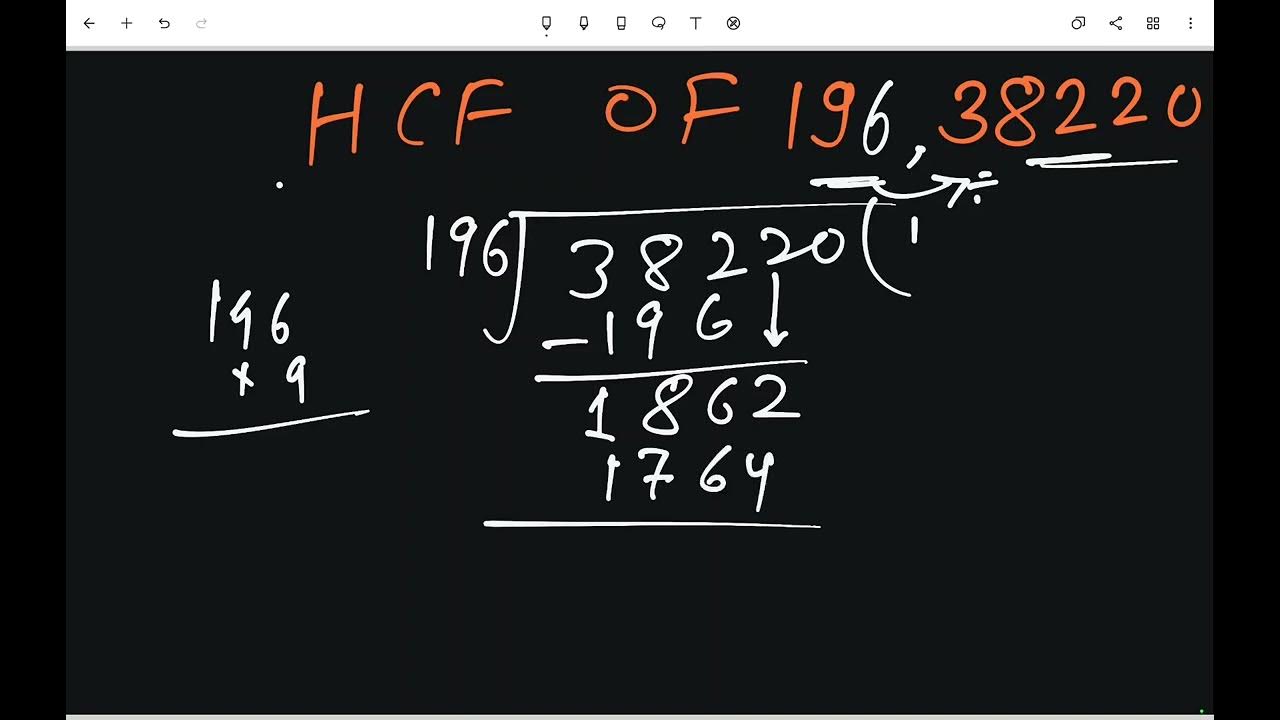 HCF OF 196, 38220
÷
196 38220 ( 1
- 196
1862
1764
196
× 9